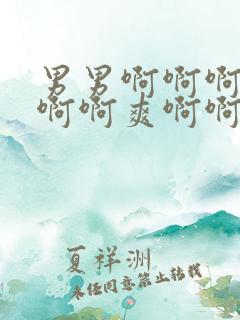 男男啊啊啊
啊啊爽啊啊
夏祥洲
未经同意禁止转载